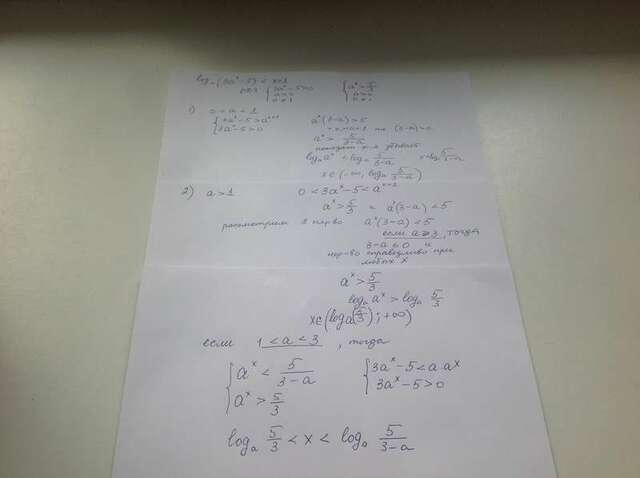 logₐ(3aˣ-5) < x+1
ОДЗ { 3aˣ-5>0 a>0 a≠1 { aˣ>5/3 a>0 a≠1
1) 0<a<1
{ 3aˣ-5>aˣ⁺¹ aˣ(3-a)>5
{ 3aˣ-5>0 т.к. 0<a<1 то (3-a)>0
aˣ > 5/(3-a)
показат. ф-я убывает
logₐaˣ < logₐ 5/(3-a) x<logₐ 5/(3-a)
x∈(-∞, logₐ 5/(3-a))
2) a>1 0<3aˣ-5<aˣ⁺¹
aˣ>5/3 и aˣ(3-a)<5
рассмотрим нер-во aˣ(3-a)<5
если a≥3, тогда
3-a≤0 и
нер-во справедливо при
любых x
aˣ>5/3
logₐaˣ > logₐ 5/3
x∈(logₐ(5/3); +∞)
если 1<a<3, тогда
{ aˣ < 5/(3-a) { 3aˣ-5<a·aˣ
{ aˣ > 5/3 { 3aˣ-5>0
logₐ 5/3 < x < logₐ 5/(3-a)